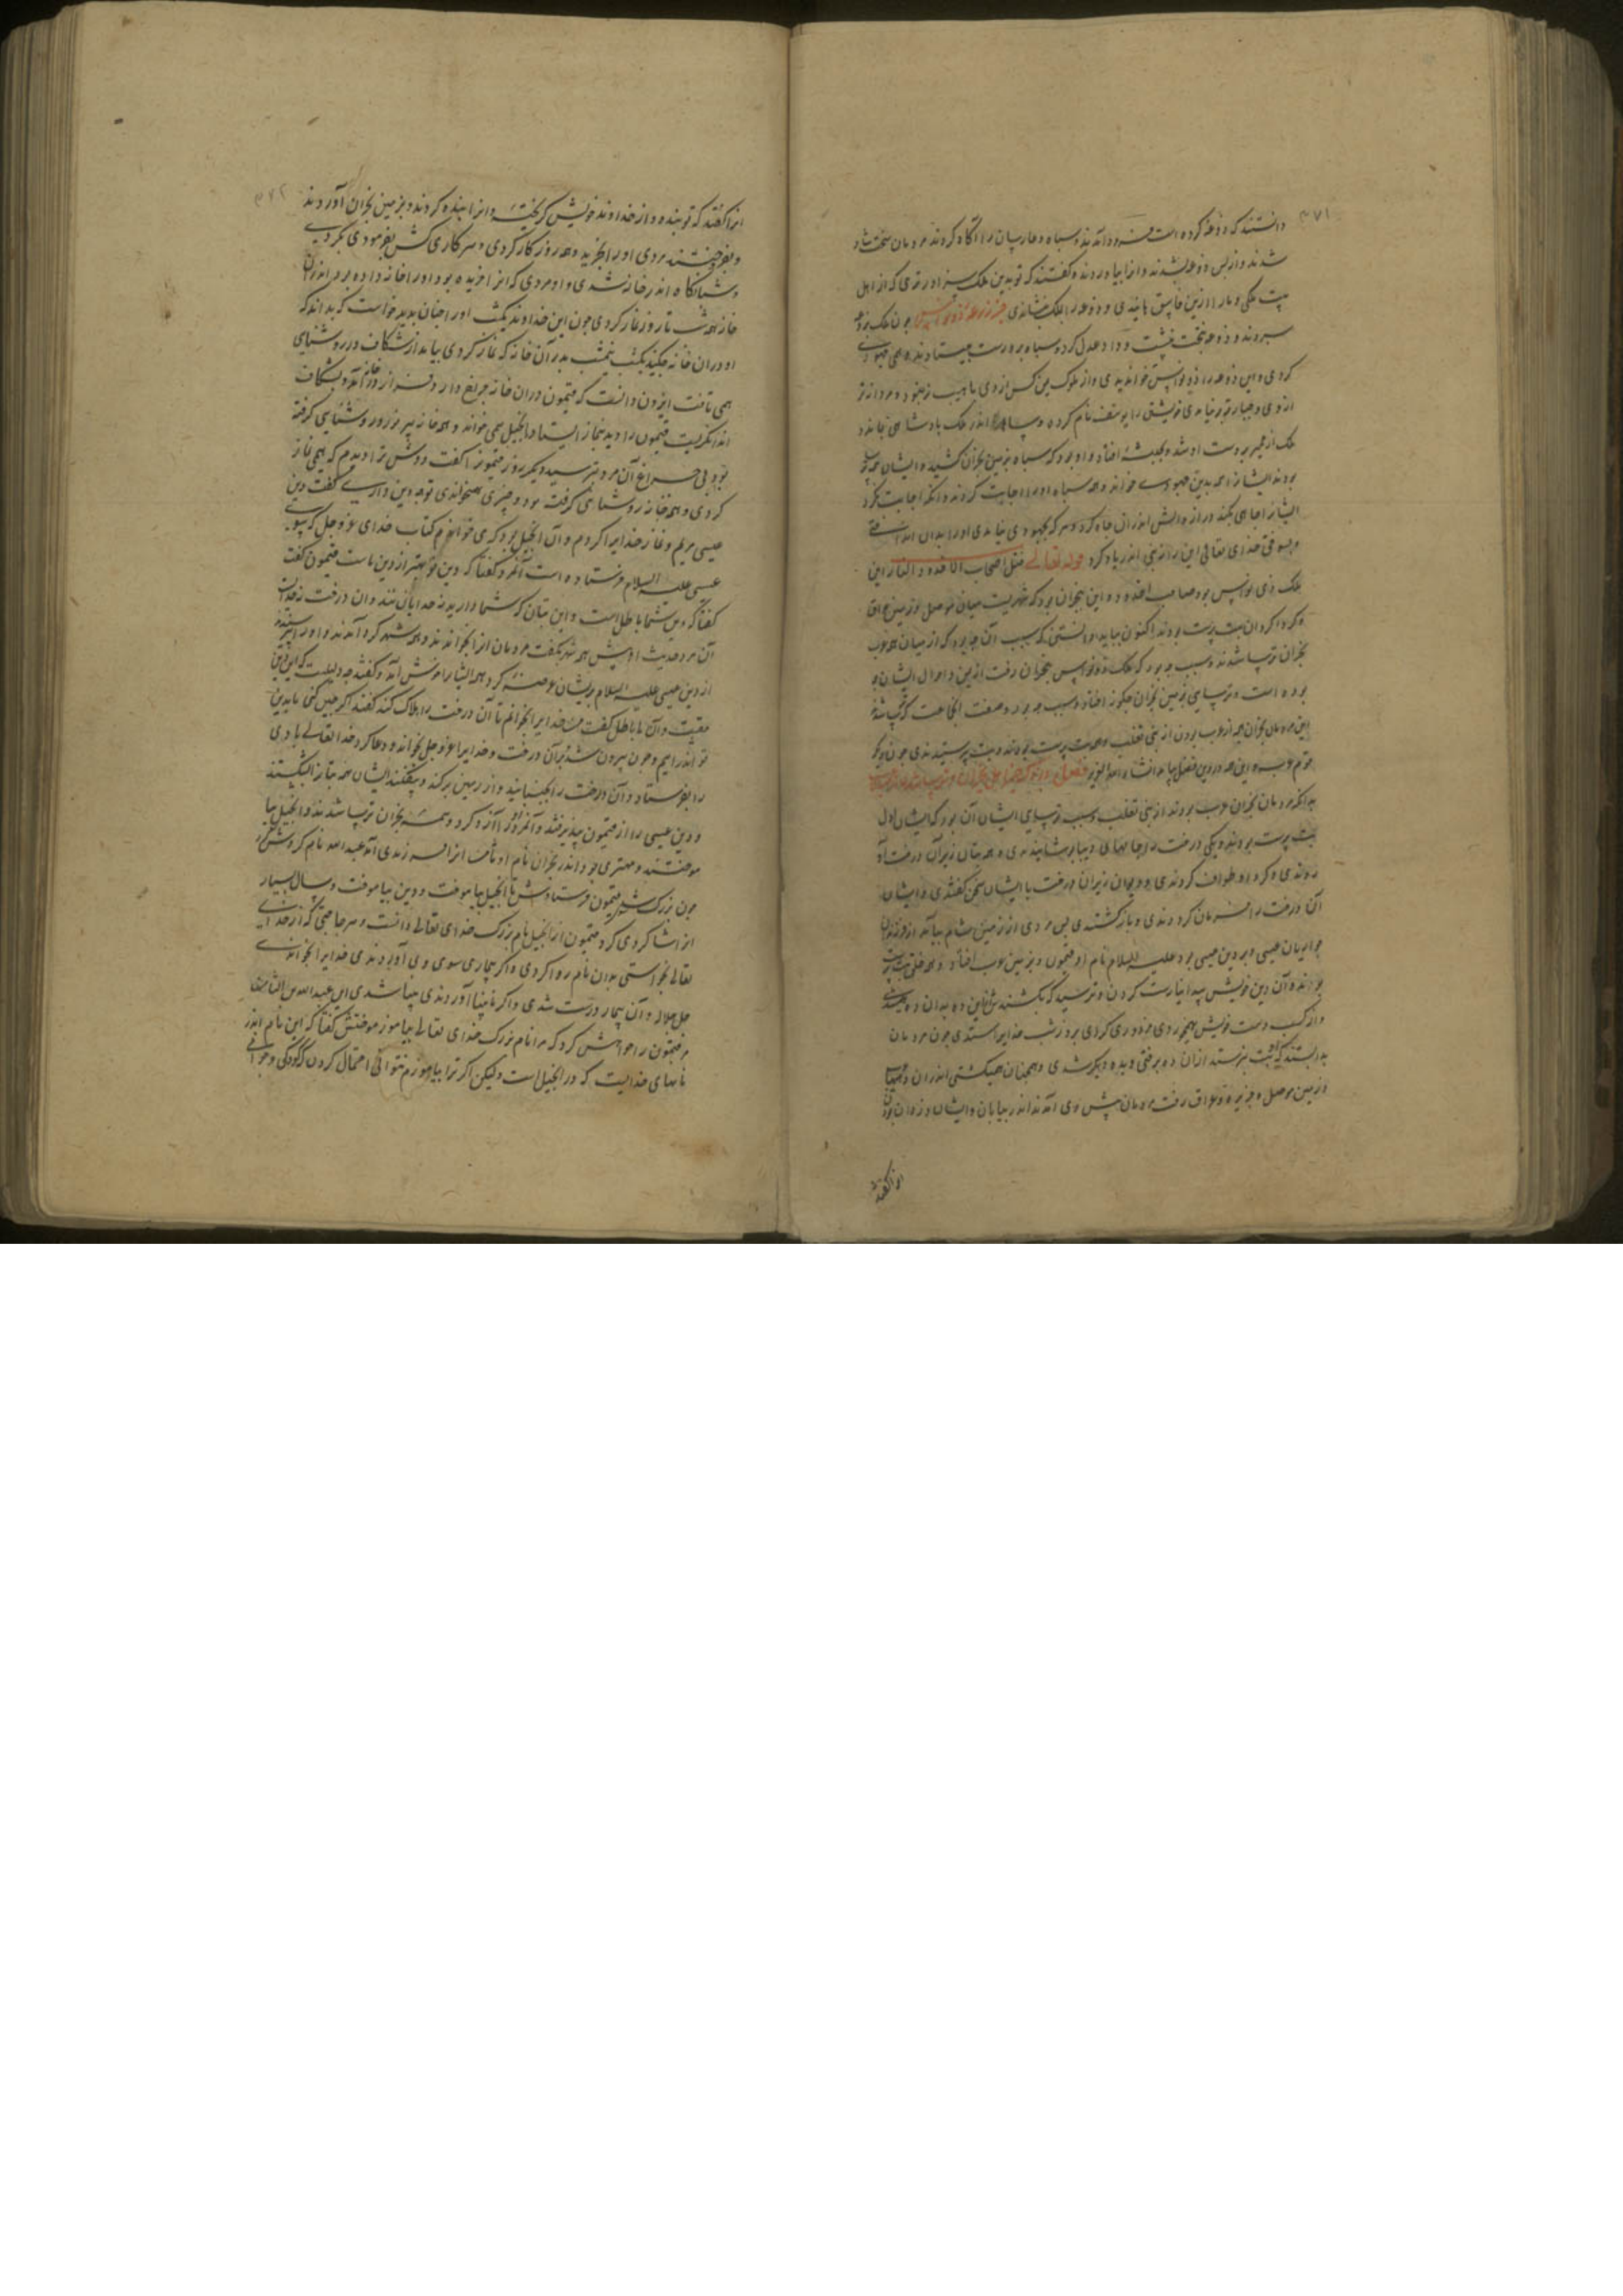 ۳۷۱
دانستند که ذرعه کرده است فرود آمدند و سپاه و حارسان را آکاه کردند مردمان سخت شاد
شدند و از پس ذرعه بشدند و انرا بیاوردند و گفتند که تو بدین ملک سزاوارتری که از اهل
بیت ملکی و ما را ازین فاسق برهانیدی و ذرعه را بملک بنشاندی
سپردند و ذرعه بتخت بنشست و داد و عدل کرد و سپاه برو راست بیستادند
کردی و این ذرعه را ذونواس خواندندی و از ملوک یمن کس از وی با هیبت تر نبود و مردانه تر
از وی و خویشتن را یوسف نام کرده و سالها اندر ملک پادشاهی بماند و
ملک از حمیر بدست او شد و او بود که سپاه بزمین نجران کشید و ایشان همه ترسا
بودند ایشانرا همه بدین جهودی خواند و همه سپاه او را اجابت کردند و انکه اجابت نکرد
ایشانرا چاهی بکند و از آتش اندران چاه کرد و هر که بجهودی نیامدی او را بدان انداختی
و بسوختی خدای تعالی این را از نبی اندر یاد کرد قوله تعالی قتل اصحاب الاخدود النار این
ملک ذی نواس بود صاحب اخدود و این نجران بود که شهریست میان موصل و زمین عراق
و کرداکردان بت پرست بودند اکنون بباید دانستن که سبب آن چه بود که از میان همه عرب
نجران ترسا شدند و سبب چه بود که ملک ذونواس بنجران رفت از یمن و احوال ایشان چه
بوده است و ترسایی بزمین نجران چکونه افتاد و سبب چه بود و صفت انجاعت که ترسا شدند
این مردمان نجران همه از عرب بودن از بنی تغلب و همه بت پرست بودند و بت پرستیدندی چون دیکر
قوم عرب و این همه در دین فصل بیاید انشاء الله العزیز
بدانکه مردمان نجران عرب بودند از بنی تغلب و سبب ترسایی ایشان آن بود که ایشان اول
بت پرست بودند و یکی درخت را جامهای دیبا پوشانیدندی و همه بتان زیر آن درخت آو
ردندی و کرد او طواف کردندی و دیوان زیر آن درخت با ایشان سخن کفتندی و ایشان
آن درخت را فرمان کردندی و بازکشتندی پس مردی از زمین شام بیامد از فرزندان
حواریان عیسی و بر دین عیسی بود علیه السلام نام او فتمون و بزمین عرب افتاد و همه خلق بت پرست
بودند و آن دین خویش پیدا نیارست کردن و ترسید که بکشند
و از کسب دست خویش میخوردی و مزدوری کردی بروز شب خدایرا پرستیدی چون مردمان
بدانستند که او بت نپرستد ازان ده برفتی و بده دیکر شدی و همچنان همیکشتی اندران دیهها
از زمین موصل و جزیره و عراق رفت مردمان پیش وی آمدند اندر بیابان و ایشان دزدان بودن
انرا گفتند
۳۷۲
انرا گفتند که تو بنده و از خداوند خویش کریخته و انرا بنده کردند و بزمین نجران آوردند
و بفروختند مردی او را بخرید و همه روز کار کردی و هر کاری کش بفرمودی بکردی
و شبانکاه اندر خانه شدی و او مردی که انرا خریده بود او را خانه داده بود اندران
خانه همه شب تا روز نماز کردی چون این خداوند یکشب او را چنان بدید خواست که بداند که
او دران خانه چکند یکشب نیمشب بدر آن خانه که نماز کردی بیامد از شکاف در روشنایی
همی تافت ایزون دانست که فتمون دران خانه چراغ دارد از در آمد و بشکاف
اندر نکریست فتمون را دید بنماز ایستاده و انجیل همی خواند و همه خانه پر نور و روشنایی کرفته
بود بی چراغ آن مرد بترسید دیکر روز فتمون را گفت دوش ترا دیدم که همی نماز
کردی و همه خانه روشنایی کرفته بود و چیزی همیخواندی تو چه دین داری گفت دین
عیسی مریم و نماز خدایرا کردم و آن انجیل بود که می خواندم کتاب خدای عز و جل که بسوی
عیسی علیه السلام فرستاده است آنمرد کفتا که دین تو بهتر از دین ماست فتمون گفت
کفتا که دین شما باطل است و این بتان که شما دارید نه خدایان اند و ان درخت نه خداست
آن مرد حدیث او پیش همه شهر بگفت مردمان انرا بخواندند و همه شهر کرد آمدند و او را بپرسیدند
از دین عیسی علیه السلام بریشان عرضه کرد همه ایشانرا خوش آمد و گفتند چه دلیلست که این دین
حقست و آن ما باطل گفت من خدایرا بخوانم تا آن درخت را هلاک کند گفتند اکر چنین کنی ما بدین
تو اندر آییم و چون بیرون شد بران درخت و خدایرا عز و جل بخواند و دعا کرد خدا تعالی بادی
را بفرستاد و آن درخت را بجنبانید و از زمین برکند و بیفکند ایشان همه بتانرا بشکستند
و دین عیسی را از فتمون بپذیرفتند و آنمرد او را آزاد کرد و همه نجران ترسا شدند و انجیل بیا
موختند و مهتری بود اندر نجران نام او ثامر انرا پسر زندی آمد عبدالله نام کردش و
چون بزرک شد بفتمون فرستادش تا انجیل بیاموخت و دین بیاموخت و سال بسیار
انرا شاکردی کرد فتمون از انجیل نام بزرک خدای تعالی دانست و هر حاجتی که از خدای
تعالی بخواستی بدان نام روا کردی و اکر بیماری سوی وی آوردندی خدایرا بخواندی
جل جلاله و آن بیمار درست شدی و اکر نابینا آوردندی بینا شدی این عبدالله بن الثامر
مر فتمون را خواهش کرد که مرا نام بزرک خدای تعالی بیاموز موختش کفتا که این نام اندر
نامهای خدایست که در انجیل است ولیکن اکر ترا بیاموزم نتوانی احتمال کردن که کودکی و جوانی